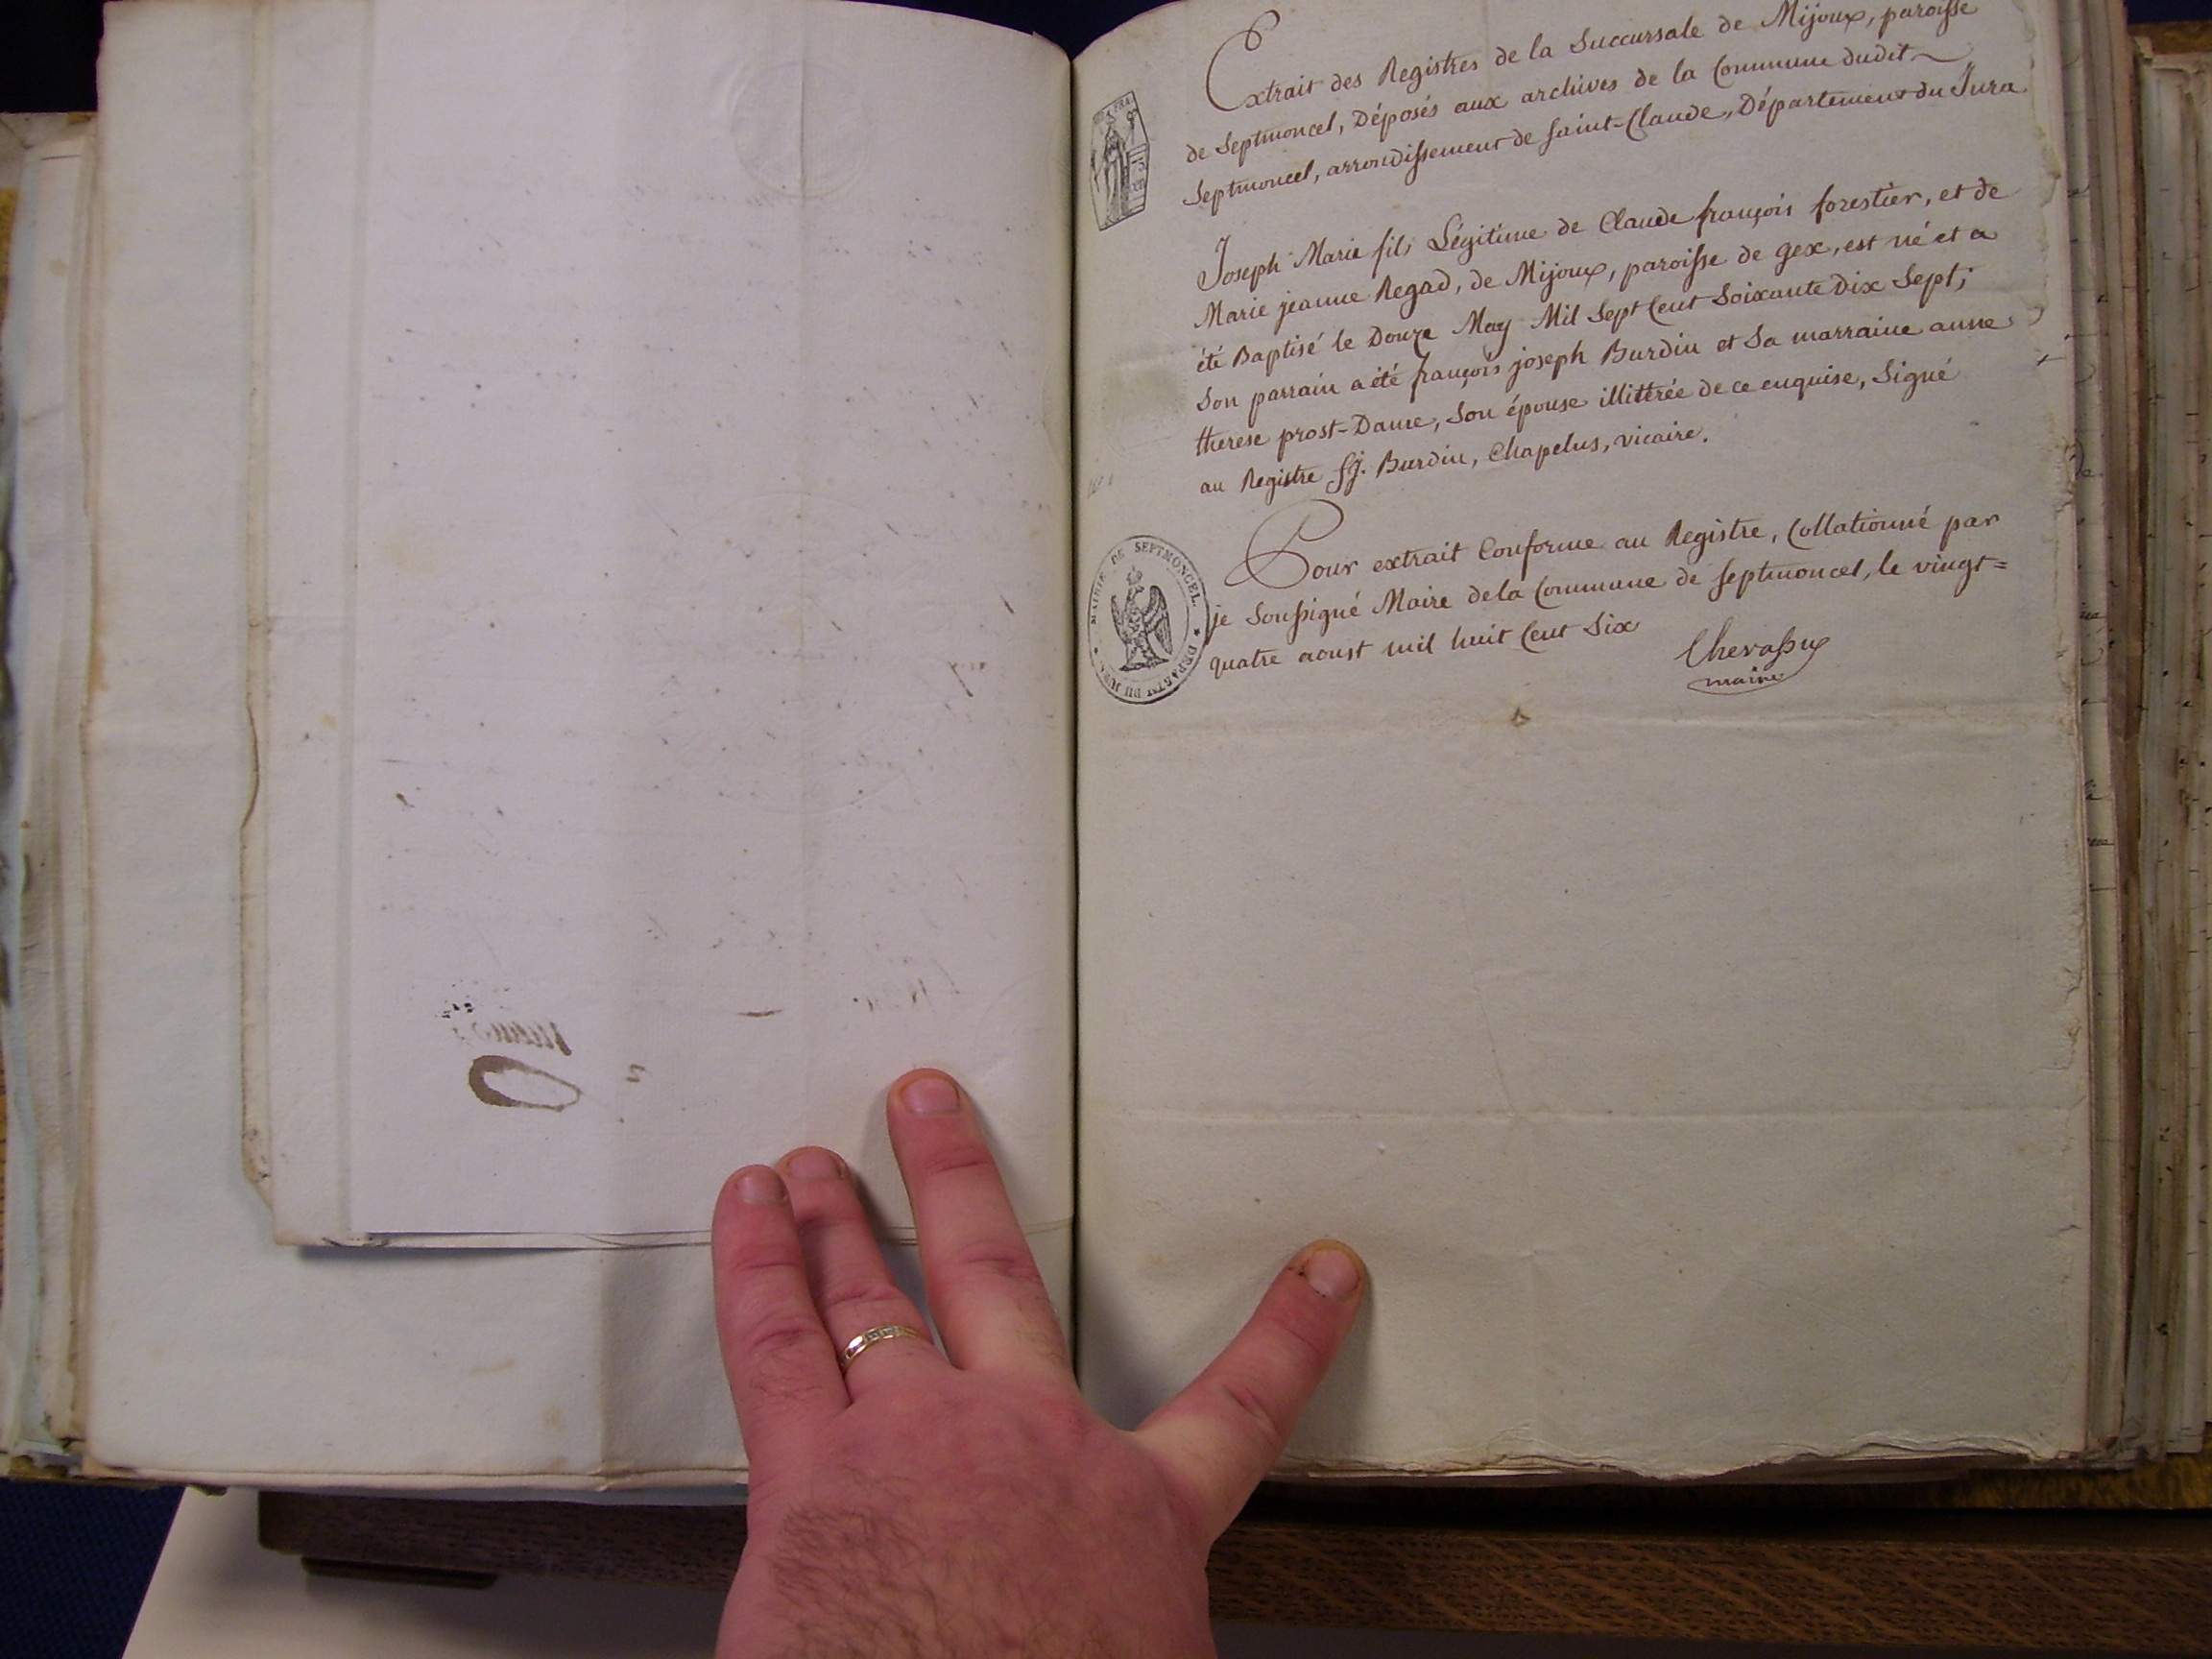 Extrait des Registres de la Succursale de Mijoux, paroisse
de Septmoncel, Déposés aux archives de la Commune dudit
Septmoncel, arrondissement de Saint-Claude, Département du Jura
Joseph Marie fils Légitime de Claude françois forestier, et de
Marie jeanne Regad, de Mijoux, paroisse de gex, est né et a
été Baptisé le Douze May Mil Sept Cent Soixante Dix Sept;
Son parrain a été françois joseph Burdin et Sa marraine anne
therese prost-Dame, Son épouse illitérée de ce enquise, Signé
au Registre fj. Burdin, Chapelus, vicaire.
Pour extrait Conforme au Registre, Collationné par
je Soussigné Maire de la Commune de Septmoncel, le vingt=
quatre aoust mil huit Cent Six
Chevassus
maire
MAIRIE DE SEPTMONCEL. * DÉPART.T DU JURA *